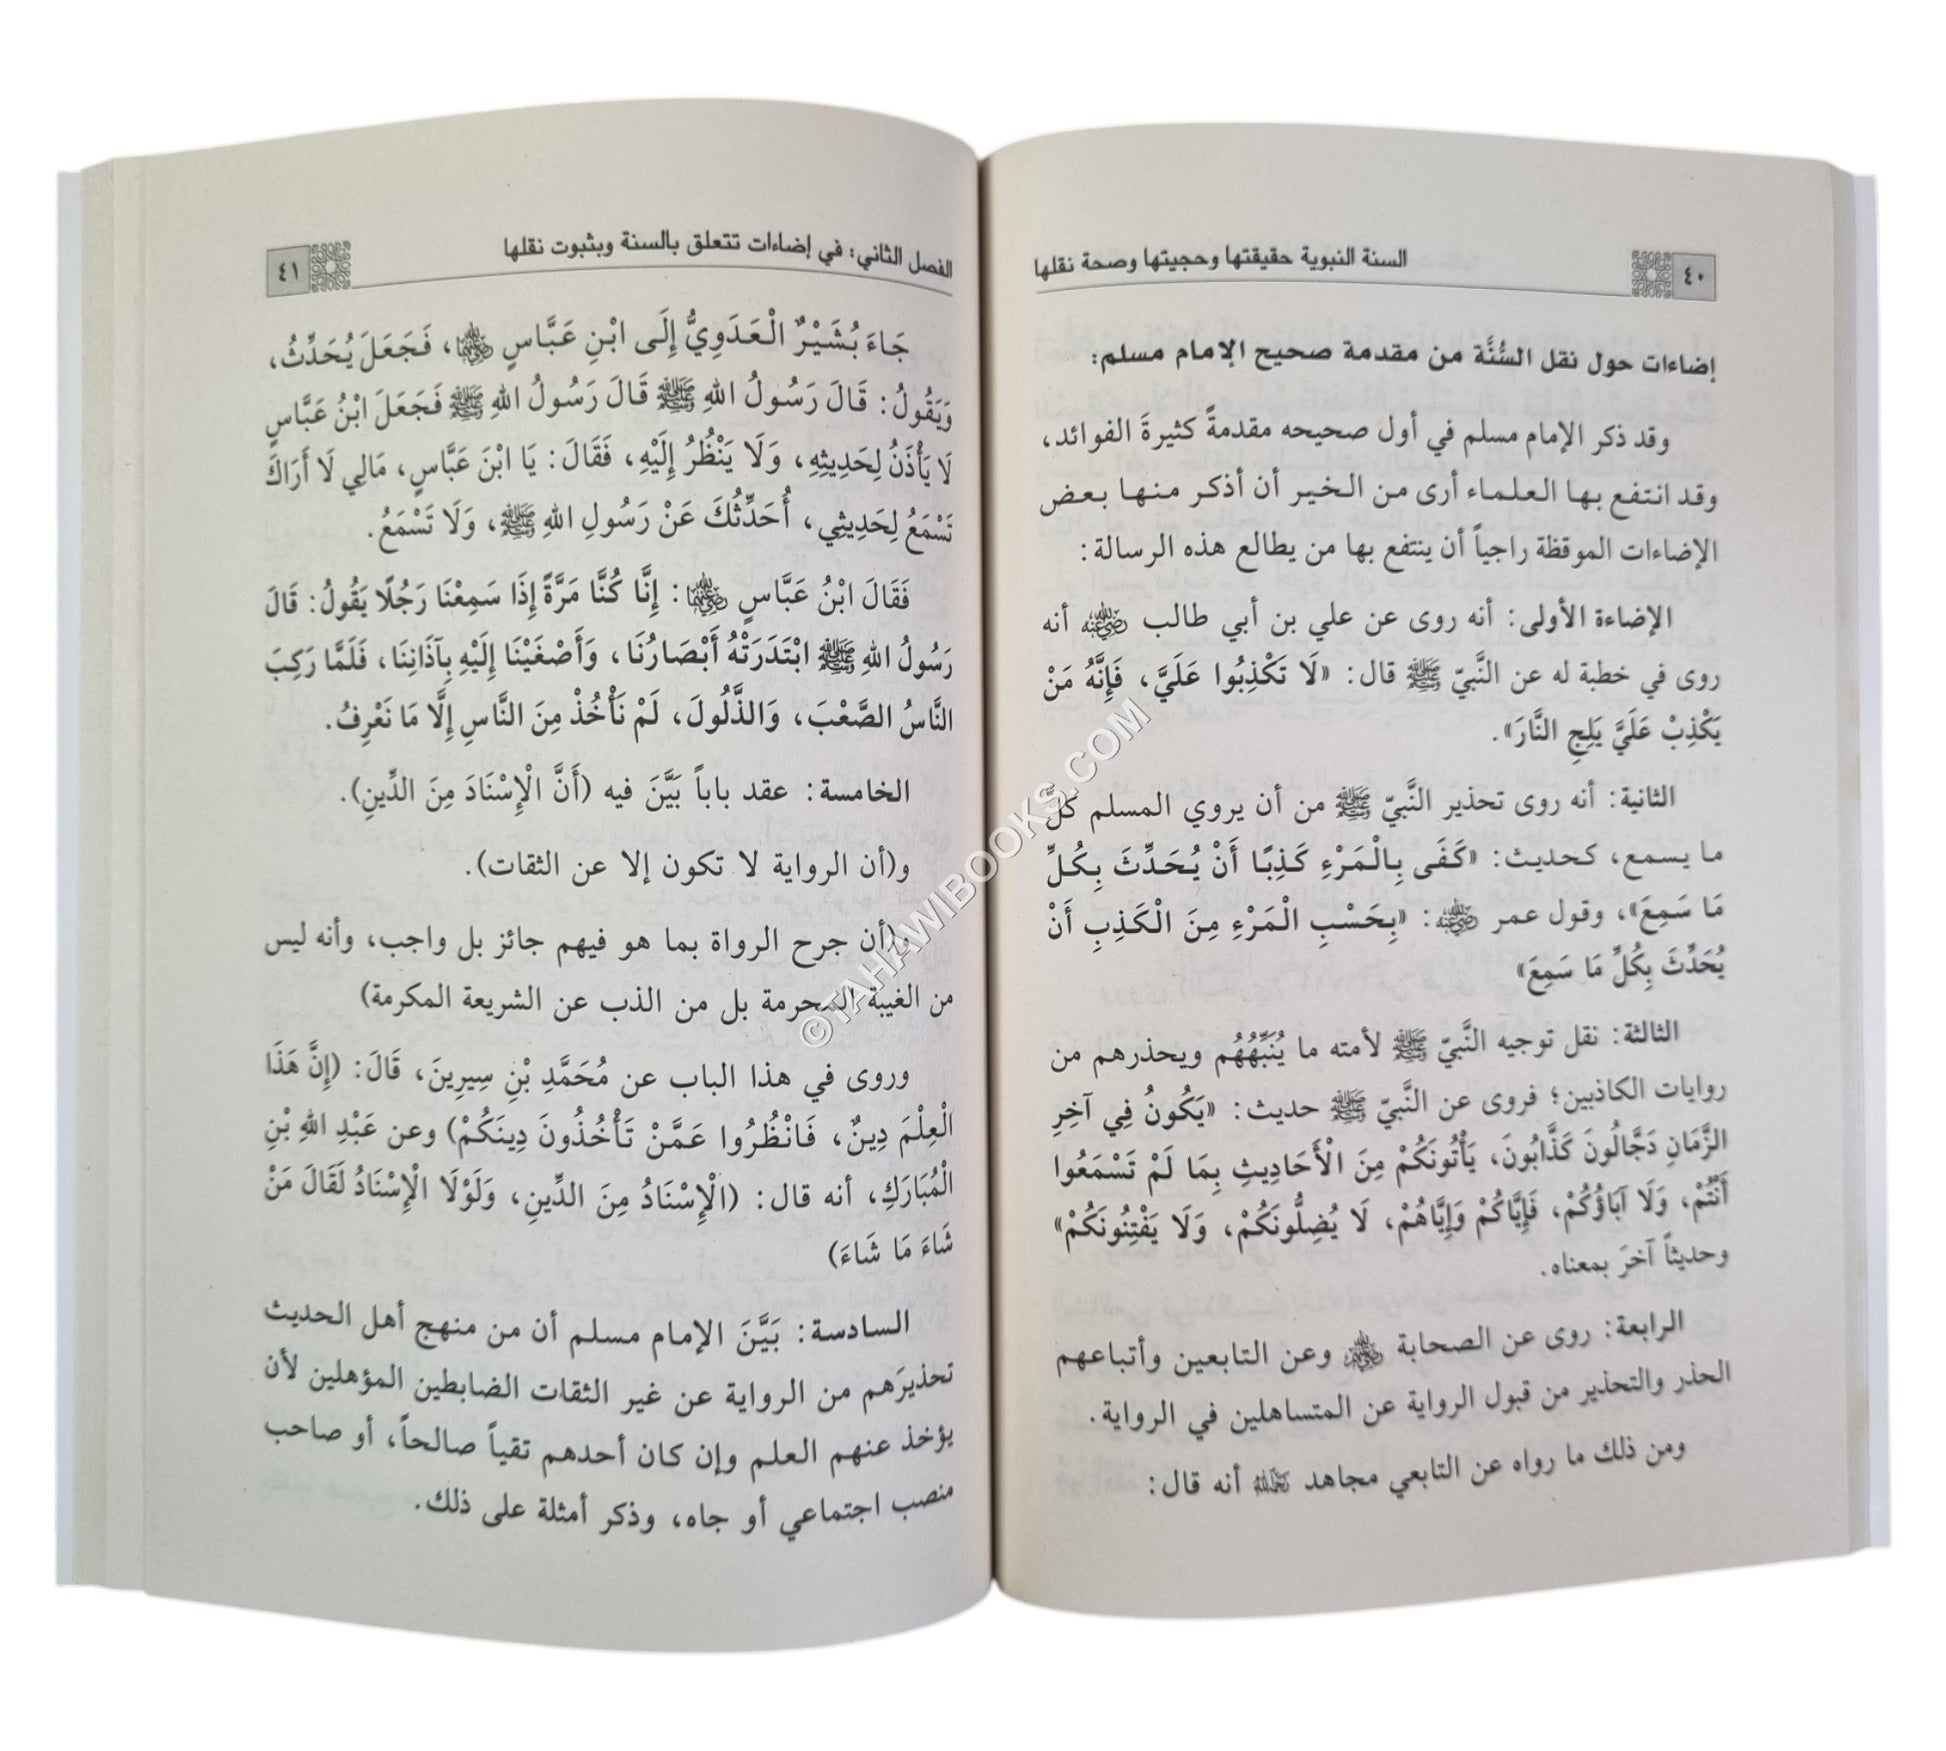 ٤٠ السنة النبوية حقيقتها وحجيتها وصحة نقلها
إضاءات حول نقل السُّنَّة من مقدمة صحيح الإمام مسلم:
وقد ذكر الإمام مسلم في أول صحيحه مقدمةً كثيرةَ الفوائد،
وقد انتفع بها العلماء أرى من الخير أن أذكر منها بعض
الإضاءات الموقظة راجياً أن ينتفع بها من يطالع هذه الرسالة:
الإضاءة الأولى: أنه روى عن علي بن أبي طالب رضي الله عنه أنه
روى في خطبة له عن النَّبيّ ﷺ قال: «لَا تَكْذِبُوا عَلَيَّ، فَإِنَّهُ مَنْ
يَكْذِبْ عَلَيَّ يَلِجِ النَّارَ».
الثانية: أنه روى تحذير النَّبيّ ﷺ من أن يروي المسلم كلَّ
ما يسمع، كحديث: «كَفَى بِالْمَرْءِ كَذِبًا أَنْ يُحَدِّثَ بِكُلِّ
مَا سَمِعَ»، وقول عمر رضي الله عنه: «بِحَسْبِ الْمَرْءِ مِنَ الْكَذِبِ أَنْ
يُحَدِّثَ بِكُلِّ مَا سَمِعَ»
الثالثة: نقل توجيه النَّبيّ ﷺ لأمته ما يُنَبِّهُهُم ويحذرهم من
روايات الكاذبين؛ فروى عن النَّبيّ ﷺ حديث: «يَكُونُ فِي آخِرِ
الزَّمَانِ دَجَّالُونَ كَذَّابُونَ، يَأْتُونَكُمْ مِنَ الْأَحَادِيثِ بِمَا لَمْ تَسْمَعُوا
أَنْتُمْ، وَلَا آبَاؤُكُمْ، فَإِيَّاكُمْ وَإِيَّاهُمْ، لَا يُضِلُّونَكُمْ، وَلَا يَفْتِنُونَكُمْ»
وحديثاً آخرَ بمعناه.
الرابعة: روى عن الصحابة رضي الله عنهم وعن التابعين وأتباعهم
الحذر والتحذير من قبول الرواية عن المتساهلين في الرواية.
ومن ذلك ما رواه عن التابعي مجاهد رحمه الله أنه قال:
الفصل الثاني: في إضاءات تتعلق بالسنة وبثبوت نقلها ٤١
جَاءَ بُشَيْرٌ الْعَدَوِيُّ إِلَى ابْنِ عَبَّاسٍ رضي الله عنهما، فَجَعَلَ يُحَدِّثُ،
وَيَقُولُ: قَالَ رَسُولُ اللهِ ﷺ قَالَ رَسُولُ اللهِ ﷺ فَجَعَلَ ابْنُ عَبَّاسٍ
لَا يَأْذَنُ لِحَدِيثِهِ، وَلَا يَنْظُرُ إِلَيْهِ، فَقَالَ: يَا ابْنَ عَبَّاسٍ، مَالِي لَا أَرَاكَ
تَسْمَعُ لِحَدِيثِي، أُحَدِّثُكَ عَنْ رَسُولِ اللهِ ﷺ، وَلَا تَسْمَعُ.
فَقَالَ ابْنُ عَبَّاسٍ رضي الله عنهما: إِنَّا كُنَّا مَرَّةً إِذَا سَمِعْنَا رَجُلًا يَقُولُ: قَالَ
رَسُولُ اللهِ ﷺ ابْتَدَرَتْهُ أَبْصَارُنَا، وَأَصْغَيْنَا إِلَيْهِ بِآذَانِنَا، فَلَمَّا رَكِبَ
النَّاسُ الصَّعْبَ، وَالذَّلُولَ، لَمْ نَأْخُذْ مِنَ النَّاسِ إِلَّا مَا نَعْرِفُ.
الخامسة: عقد باباً بَيَّنَ فيه (أَنَّ الْإِسْنَادَ مِنَ الدِّينِ).
و(أن الرواية لا تكون إلا عن الثقات).
و(أن جرح الرواة بما هو فيهم جائز بل واجب، وأنه ليس
من الغيبة المحرمة بل من الذب عن الشريعة المكرمة)
وروى في هذا الباب عن مُحَمَّدِ بْنِ سِيرِينَ، قَالَ: (إِنَّ هَذَا
الْعِلْمَ دِينٌ، فَانْظُرُوا عَمَّنْ تَأْخُذُونَ دِينَكُمْ) وعن عَبْدِ اللهِ بْنِ
الْمُبَارَكِ، أنه قال: (الْإِسْنَادُ مِنَ الدِّينِ، وَلَوْلَا الْإِسْنَادُ لَقَالَ مَنْ
شَاءَ مَا شَاءَ)
السادسة: بَيَّنَ الإمام مسلم أن من منهج أهل الحديث
تحذيرَهم من الرواية عن غير الثقات الضابطين المؤهلين لأن
يؤخذ عنهم العلم وإن كان أحدهم تقياً صالحاً، أو صاحب
منصب اجتماعي أو جاه، وذكر أمثلة على ذلك.
©TAHAWIBOOKS.COM